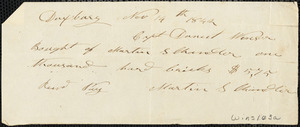 Duxbury Nov 14th 1844
Capt Daniel Winsor
Bought of Martin S Chandler one
thousand hard bricks $5.75
Recd Pay Martin S Chandler
Winsor